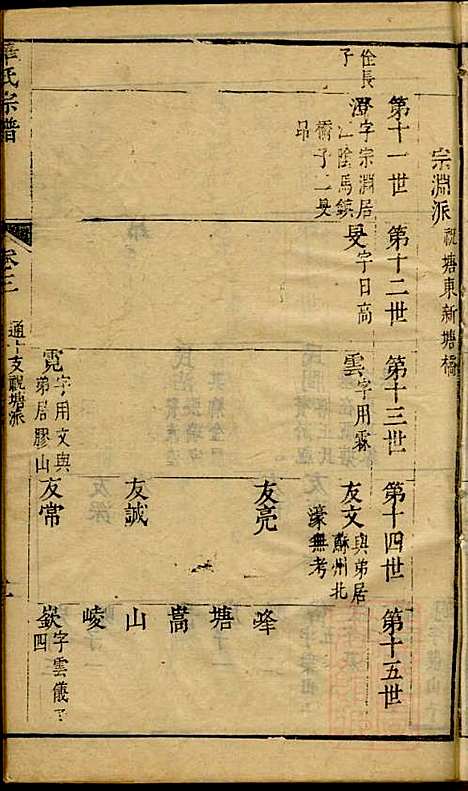 宗淵派 祝塘東新塘橋
第十一世 第十二世 第十三世 第十四世 第十五世
佺長子
澄 字宗淵居江陰馬鎮橋子二旻昂
旻 字日高
雲 字用霖
友文 與弟居蘇州北濠無考
友亮
峰
塘
嵩
友誠
山
崚
霓 字用文與弟居膠山
友常
嶔 字雲儀子四
氏宗譜
卷三
通十支祝塘派